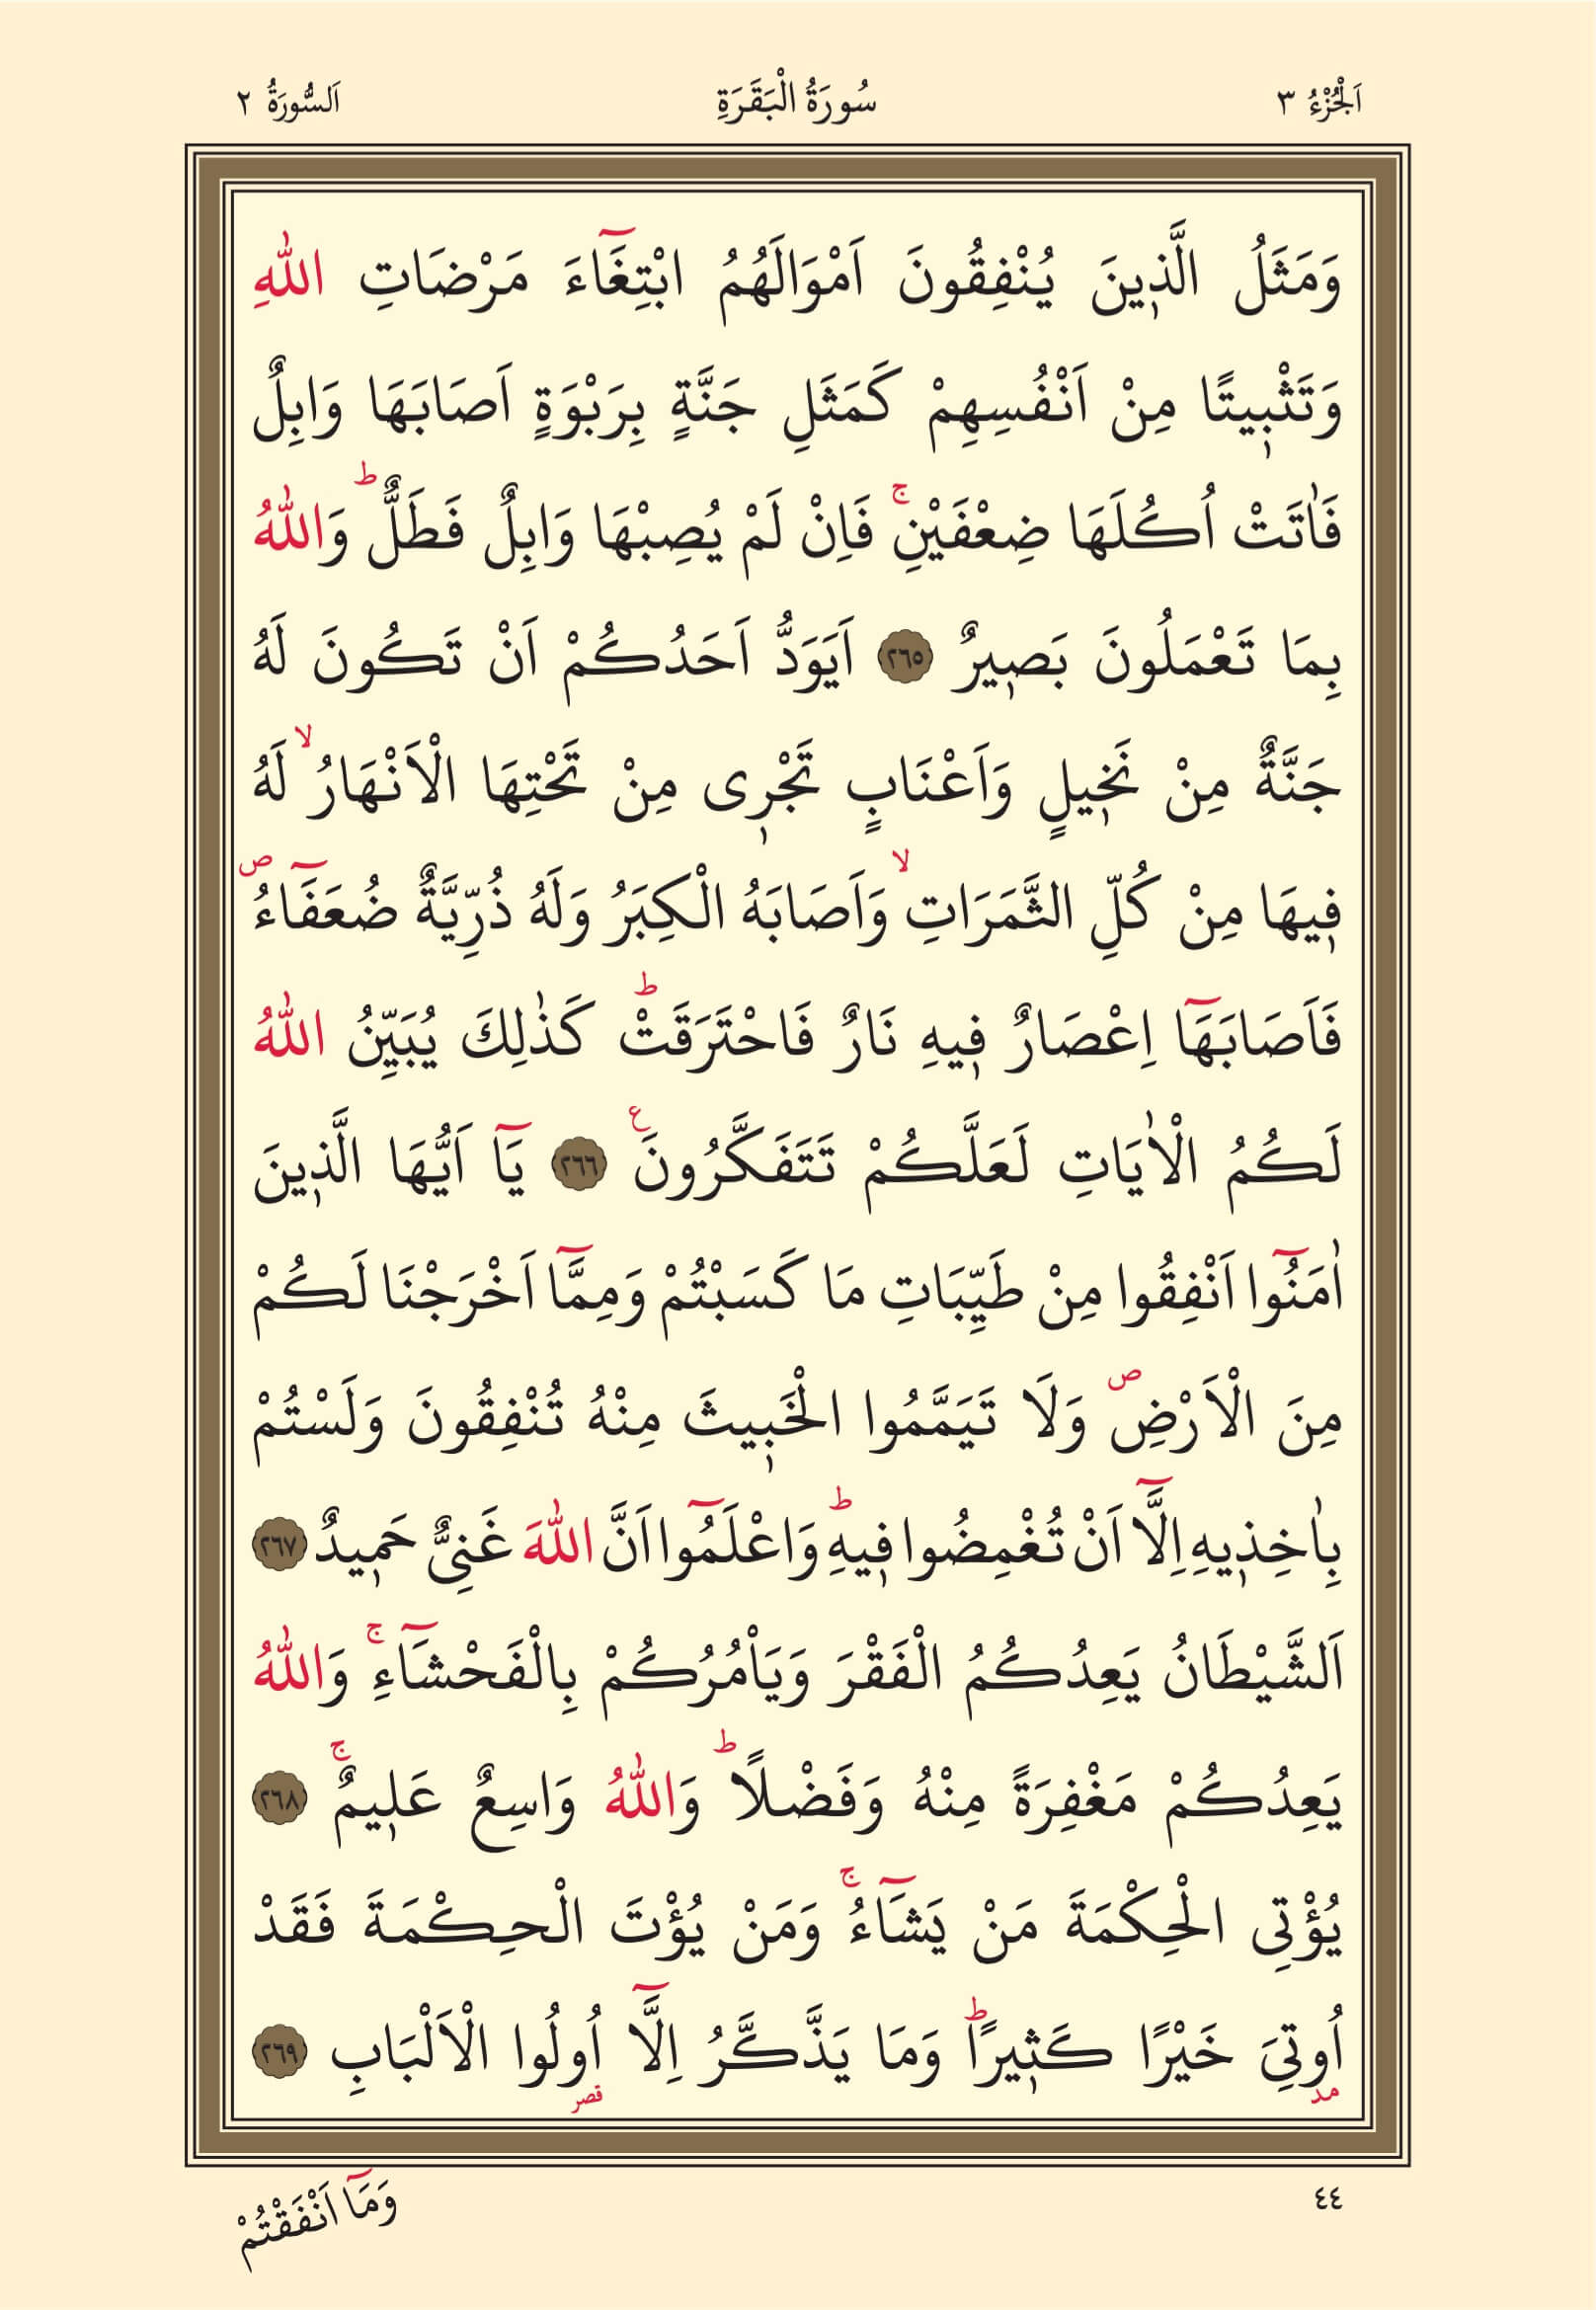 اَلْجُزْءُ ٣ سُورَةُ الْبَقَرَةِ اَلسُّورَةُ ٢
وَمَثَلُ الَّذ۪ينَ يُنْفِقُونَ اَمْوَالَهُمُ ابْتِغَٓاءَ مَرْضَاتِ اللّٰهِ
وَتَثْب۪يتًا مِنْ اَنْفُسِهِمْ كَمَثَلِ جَنَّةٍ بِرَبْوَةٍ اَصَابَهَا وَابِلٌ
فَاٰتَتْ اُكُلَهَا ضِعْفَيْنِۚ فَاِنْ لَمْ يُصِبْهَا وَابِلٌ فَطَلٌّۜ وَاللّٰهُ
بِمَا تَعْمَلُونَ بَص۪يرٌ ﴿٢٦٥﴾ اَيَوَدُّ اَحَدُكُمْ اَنْ تَكُونَ لَهُ
جَنَّةٌ مِنْ نَخ۪يلٍ وَاَعْنَابٍ تَجْر۪ى مِنْ تَحْتِهَا الْاَنْهَارُۙ لَهُ
ف۪يهَا مِنْ كُلِّ الثَّمَرَاتِۙ وَاَصَابَهُ الْكِبَرُ وَلَهُ ذُرِّيَّةٌ ضُعَفَٓاءُۖ
فَاَصَابَهَٓا اِعْصَارٌ ف۪يهِ نَارٌ فَاحْتَرَقَتْۜ كَذٰلِكَ يُبَيِّنُ اللّٰهُ
لَكُمُ الْاٰيَاتِ لَعَلَّكُمْ تَتَفَكَّرُونَ۟ ﴿٢٦٦﴾ يَٓا اَيُّهَا الَّذ۪ينَ
اٰمَنُٓوا اَنْفِقُوا مِنْ طَيِّبَاتِ مَا كَسَبْتُمْ وَمِمَّٓا اَخْرَجْنَا لَكُمْ
مِنَ الْاَرْضِۖ وَلَا تَيَمَّمُوا الْخَب۪يثَ مِنْهُ تُنْفِقُونَ وَلَسْتُمْ
بِاٰخِذ۪يهِ اِلَّٓا اَنْ تُغْمِضُوا ف۪يهِۜ وَاعْلَمُٓوا اَنَّ اللّٰهَ غَنِىٌّ حَم۪يدٌ ﴿٢٦٧﴾
اَلشَّيْطَانُ يَعِدُكُمُ الْفَقْرَ وَيَاْمُرُكُمْ بِالْفَحْشَٓاءِۚ وَاللّٰهُ
يَعِدُكُمْ مَغْفِرَةً مِنْهُ وَفَضْلًاۜ وَاللّٰهُ وَاسِعٌ عَل۪يمٌۚ ﴿٢٦٨﴾
يُؤْتِى الْحِكْمَةَ مَنْ يَشَٓاءُۚ وَمَنْ يُؤْتَ الْحِكْمَةَ فَقَدْ
اُوتِىَ خَيْرًا كَث۪يرًاۜ وَمَا يَذَّكَّرُ اِلَّٓا اُولُوا الْاَلْبَابِ ﴿٢٦٩﴾
مد قصر
٤٤ وَمَٓا اَنْفَقْتُمْ